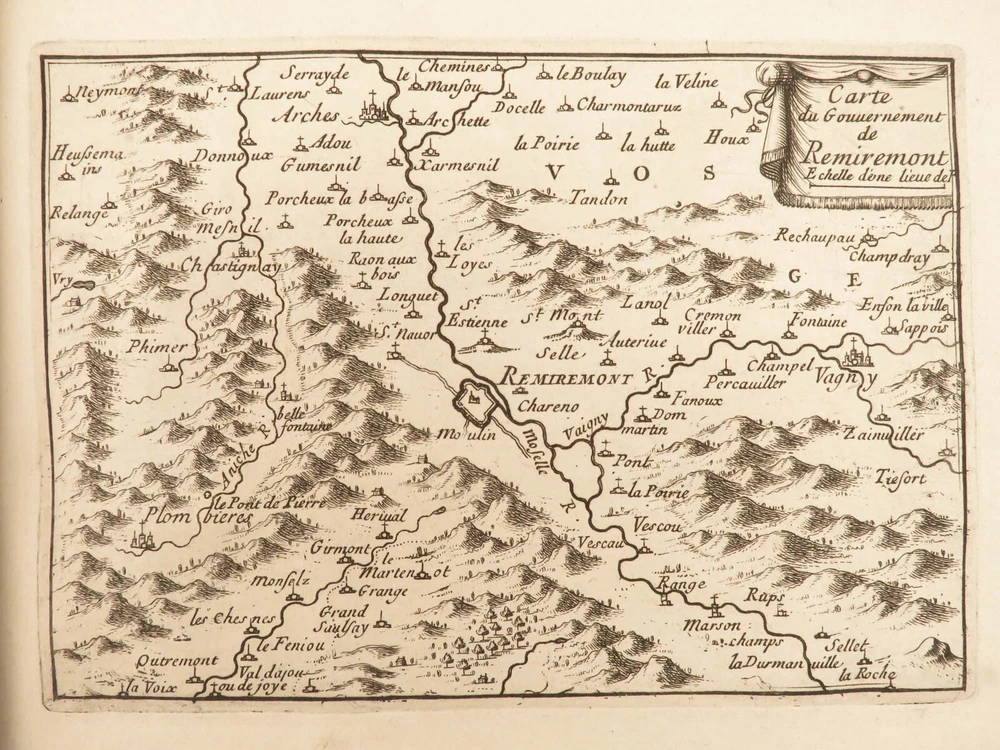 Carte
du Gouvernement
de
Remiremont
Echelle d'une lieue de
Neymont
St.
Laurens
Serrayde
le
Mansou
Chemines
le Boulay
la Veline
Docelle
Charmontaruz
Arches
Archette
Houx
Adou
Gumesnil
la Poirie
la hutte
Heussema
ins
Donnoux
Xarmesnil
VOSGE
Tandon
Relange
Giro
Mesnil
Porcheux la basse
Porcheux
la haute
Raon aux
bois
les
Loyes
Rechaupau
Champdray
Vry
Chastignay
Longuet
St
Estienne
St Mont
Lanol
Cremon
viller
Fontaine
Enson la ville
Sappois
St. Nauor
Phimer
Selle
Auteriue
Champel
Vagny
REMIREMONT
R
Percauiller
Chareno
Fanoux
belle
fontaine
Moulin
Moselle
R.
Vaigny
Dom
martin
Zainuiller
Aniche R
Pont
Tiesort
le Pont de Pierre
la Poirie
Plombieres
Heriual
Vescou
Vescau
Girmont
le
Martenot
Grange
Monselz
Range
Rups
les Chesnes
Grand
Saulsay
Marson
champs
le Feniou
Sellet
Outremont
Val dajou
ou de joye
la Durmanuille
la Roche
la Voix